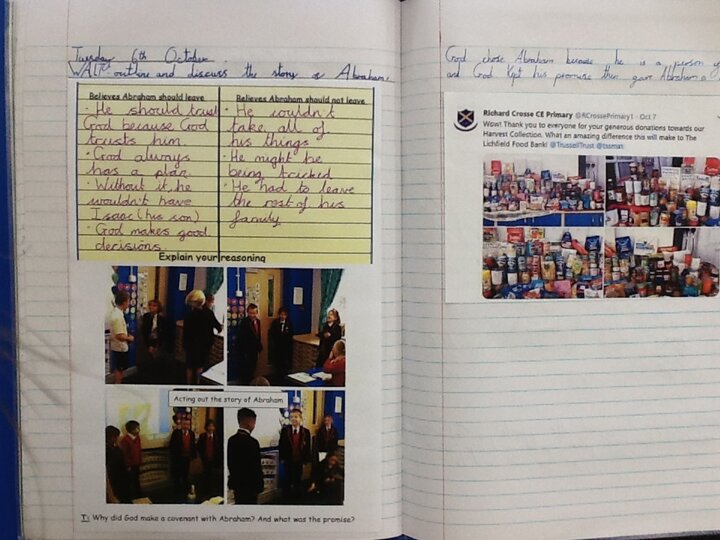 Tuesday 6th October.
WALT: outline and discuss the story of Abraham.
Believes Abraham should leave
He should trust
God because God
trusts him.
God always
has a plan.
Without it, he
wouldn't have
Isaac (his son)
God makes good
decisions.
Believes Abraham should not leave
He couldn't
take all of
his things
He might be
being tricked
He had to leave
the rest of his
family
Explain your reasoning
Acting out the story of Abraham
T: Why did God make a covenant with Abraham? And what was the promise?
God chose Abraham because he is a person
and God kept his promise then gave Abraham a
Richard Crosse CE Primary @RCrossePrimary1 · Oct 7
Wow! Thank you to everyone for your generous donations towards our
Harvest Collection. What an amazing difference this will make to The
Lichfield Food Bank! @TrussellTrust @tssmat